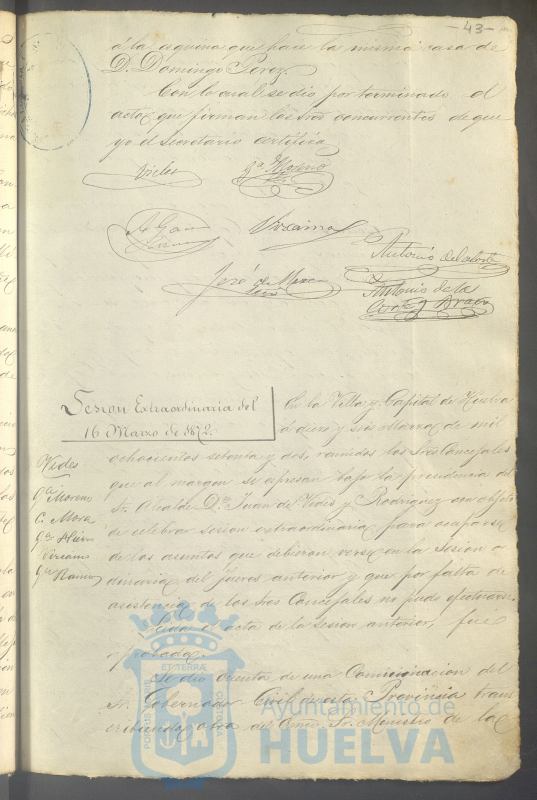 -43-
á la esquina que hace la misma casa de
D. Domingo Perez.
Con lo cual se dio por terminado el
acto que firman los Sres concurrentes de que
yo el Secretario certifico
Vides
Ga. Moreno
Vizcaino
Antonio de la Corte
José de Mora
Antonio de la
Corte y Bravo
Sesion Extraordinaria del
16 Marzo de 1872.
En la Villa y Capital de Huelva
á diez y seis Marzo de mil
ochocientos setenta y dos, reunidos los Sres Concejales
que al margen se espresan bajo la presidencia del
Sr. Alcalde Dn. Juan de Vides y Rodriguez con objeto
de celebrar sesion extraordinaria para ocuparse
de los asuntos que debieron verse en la Sesion or
dinaria del jueves anterior y que por falta de
asistencia de los Sres Concejales no pudo efectuarse.
Leida el acta de la sesion anterior, fué
aprobada.
Se dio cuenta de una Comunicacion del
Sr. Gobernador Civil de esta Provincia trans
cribiendo otra del Excmo. Sr. Ministro de la
Vides
Ga. Moreno
C. Mora
Vizcaino
Ga. Ramos
ET TERRÆ
Ayuntamiento de
HUELVA